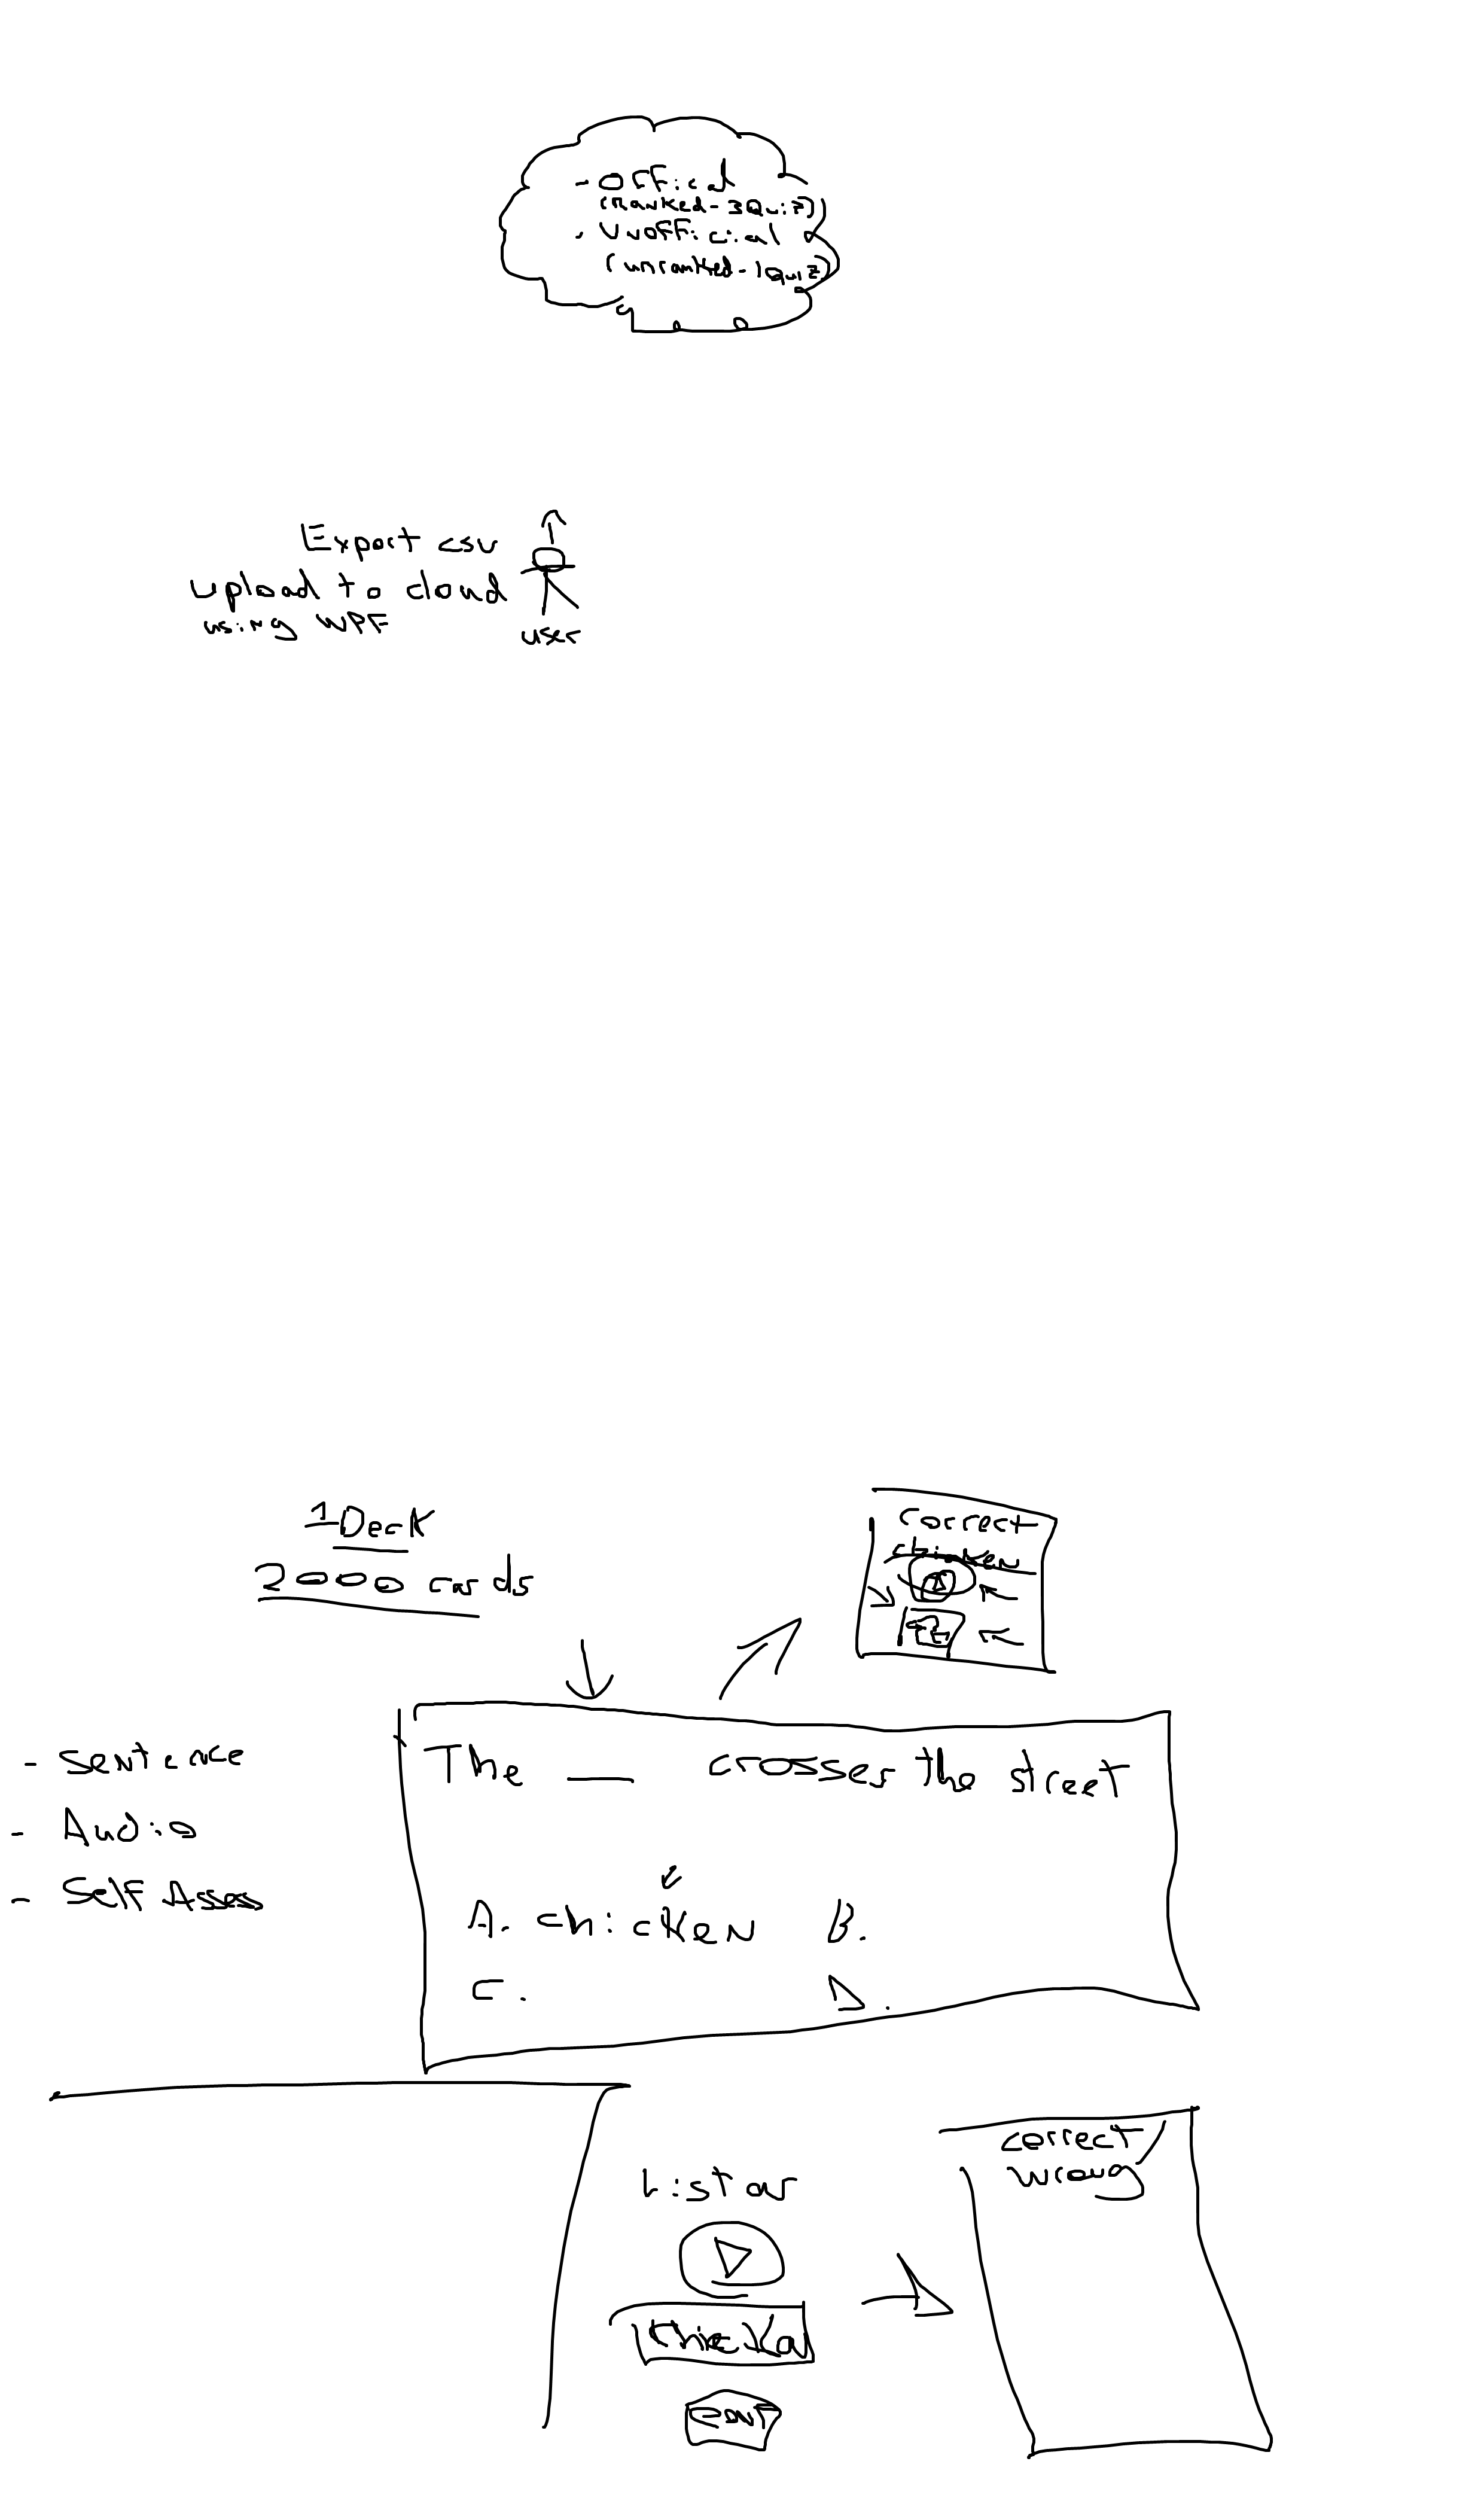 - Official
(ranked-
- Unofficial
(unranked-
Export csv
upload to cloud
using WPF
user
1 Deck
2000 cards
Correct
chicken
- Sentence
- Audio
- Self Assess
The ___ crosses the street
A. chicken B.
C. D.
Listen
Correct
wrong